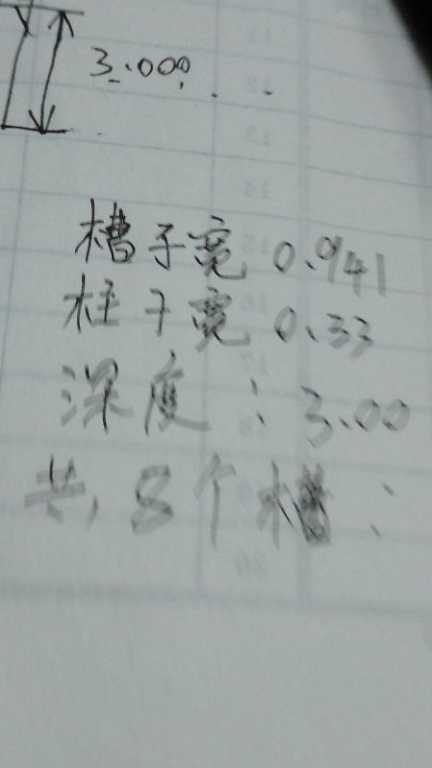 3.000
槽子宽 0.941
柱子宽 0.33
深度：3.00
共8个槽：